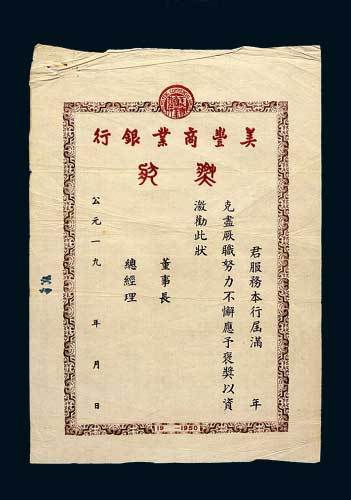 美豐商業銀行
君服務本行屆滿　年
克盡厥職努力不懈應予褒獎以資
激勸此狀
董事長
總經理
公元一九　年　月　日
1950